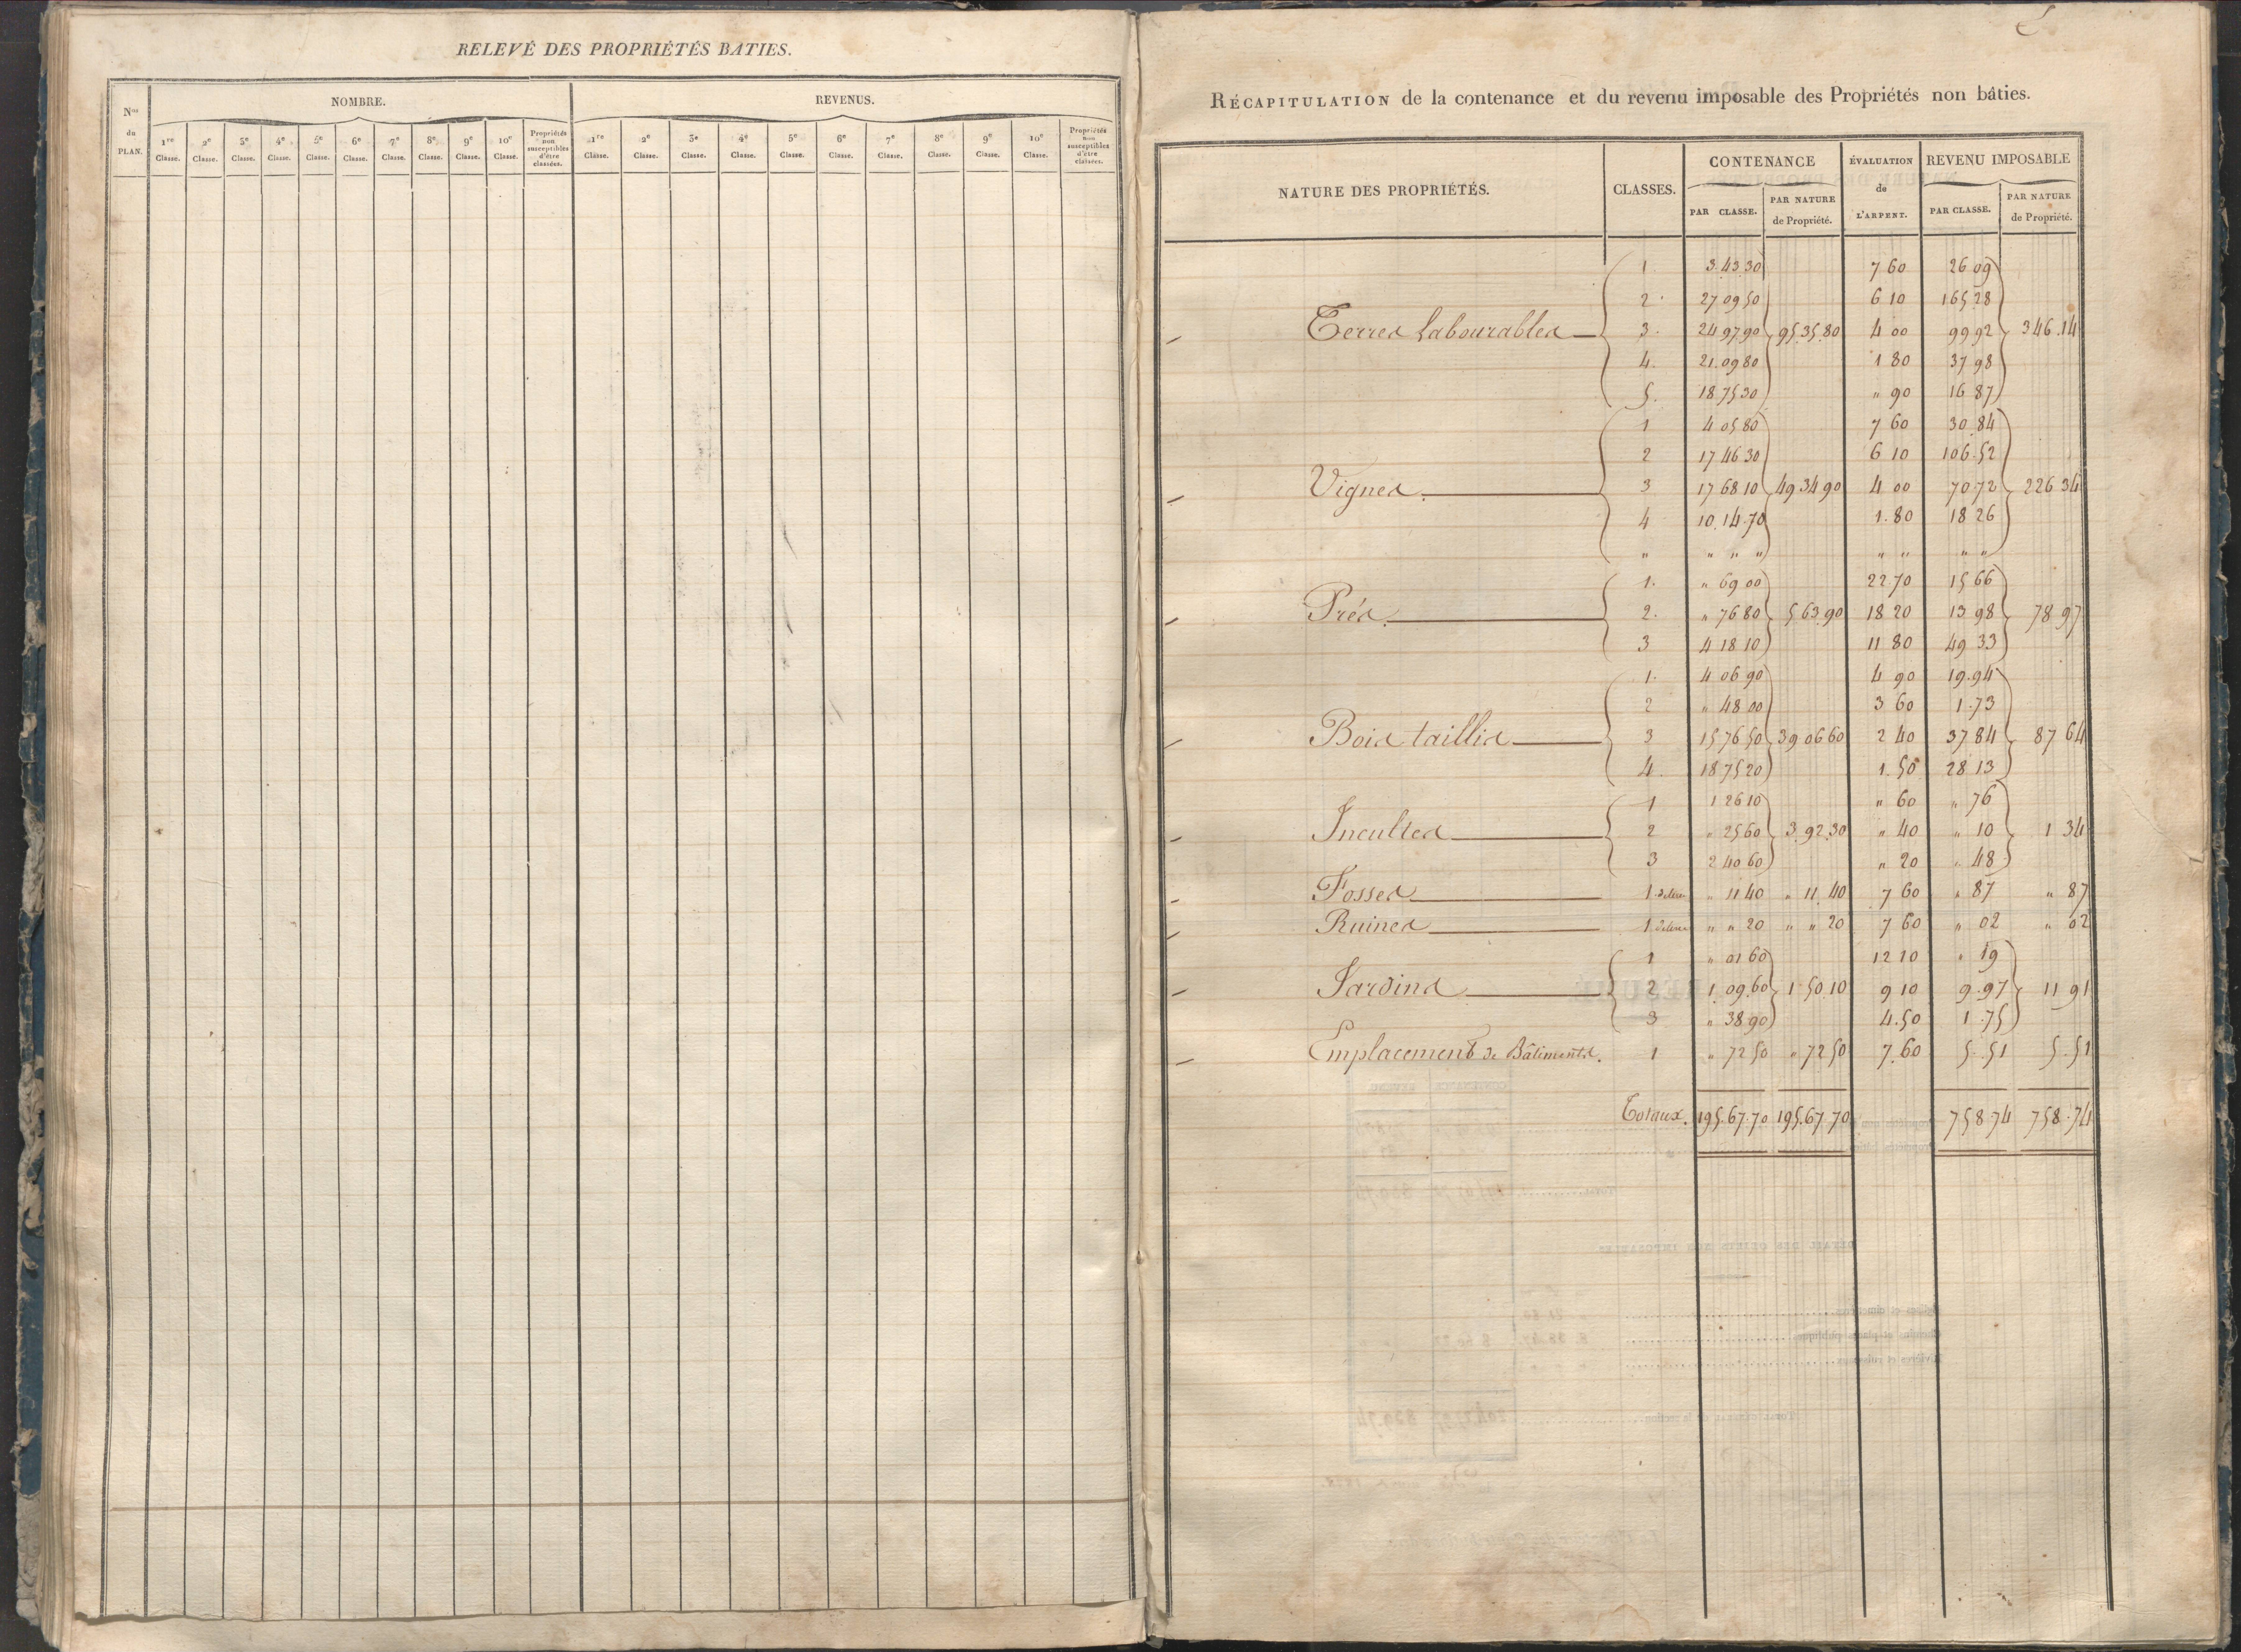 RELEVÉ DES PROPRIÉTÉS BATIES.
Nos du PLAN.
NOMBRE.
REVENUS.
1re Classe. 2e Classe. 3e Classe. 4e Classe. 5e Classe. 6e Classe. 7e Classe. 8e Classe. 9e Classe. 10e Classe. Propriétés non susceptibles d'être classées.
1re Classe. 2e Classe. 3e Classe. 4e Classe. 5e Classe. 6e Classe. 7e Classe. 8e Classe. 9e Classe. 10e Classe. Propriétés non susceptibles d'être classées.
RÉCAPITULATION de la contenance et du revenu imposable des Propriétés non bâties.
NATURE DES PROPRIÉTÉS. CLASSES. CONTENANCE ÉVALUATION de L'ARPENT. REVENU IMPOSABLE
PAR CLASSE. PAR NATURE de Propriété. PAR CLASSE. PAR NATURE de Propriété.
1 3.43.30 7 60 26 09
2 27 09 50 6 10 165 28
Terres labourables 3. 24 97.90 95.35.80 4 00 99 92 346.14
4. 21.09 80 1 80 37 98
5. 18.75 30 " 90 16 87
1 4 05 80 7 60 30 84
2 17 46 30 6 10 106.52
Vignes. 3 17 68 10 49 34 90 4 00 70 72 226 34
4 10.14.70 1.80 18 26
" " " " " " " "
1. " 69 00 22 70 15 66
Prés. 2. " 76 80 5 63 90 18 20 13 98 78.97
3 4 18 10 11 80 49 33
1. 4 06 90 4 90 19.94
2 " 48 00 3 60 1.73
Bois taillis 3 15 76 50 39 06 60 2 40 37 84 87 64
4. 18 75 20 1.50 28 13
1 1 26 10 " 60 " 76
Incultes 2 " 25 60 3.92.30 " 40 " 10 1 34
3 2 40 60 " 20 " 48
Fosses 1 " 11 40 " 11 40 7 60 " 87 " 87
Ruines 1 " " 20 " " 20 7 60 " 02 " 02
1 " 01 60 12 10 " 19
Jardins 2 1.09.60 1 50.10 9 10 9.97 11 91
3 " 38.90 4.50 1.75
Emplacement de Bâtiments. 1 " 72 50 " 72 50 7.60 5.51 5.51
Totaux. 195.67.70 195.67.70 758.74 758.74